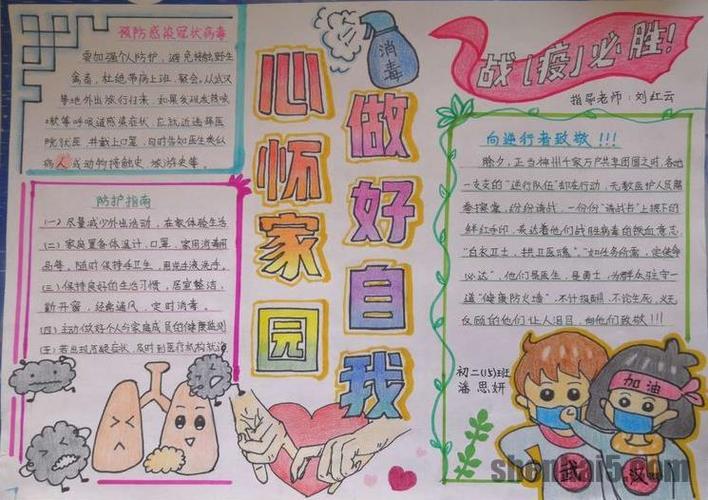 预防感染冠状病毒
要加强个人防护，避免接触野生
禽畜，杜绝带病上班、聚会，从武汉
等地外出旅行归来，如果发现发热咳
嗽等呼吸道感染症状，它就近选择医
院就医，并戴上口罩，向时告知医生类似
病人或动物接触史、旅游史等。
防护指南
(一)尽量减少外出活动，在家体验生活
(二)家庭置备体温计、口罩，家用消毒用
品等，随时保持手卫生，用洗手液洗手。
(三)保持良好的生活习惯，居室整洁
勤开窗，经常通风，定时消毒。
(四)主动做好个人与家庭成员的健康监测
(五)若出现可疑症状，及时到医疗机构就诊
心怀家园
消毒
做好自我
战(疫)必胜!
指导老师：刘红云
向逆行者致敬!!!
除夕，正当神州千家万户共享团圆之时，各地
一支支的“逆行队伍”却在行动，无数医护人员踊
份份请战，一份份“请战书”上摁下的
鲜红手印，表达着他们战胜病毒的铁血意志，
“白衣卫士，拱卫医魂”，“如任务所需，定使命
必达”，他们是医生，是勇士，为群众驻守一
道“健康防火墙”，不计报酬，不论生死，义无
反顾的他们让人泪目，向他们致敬!!!
初二(15)班
潘思妍
加油
武汉
shouhai5.com